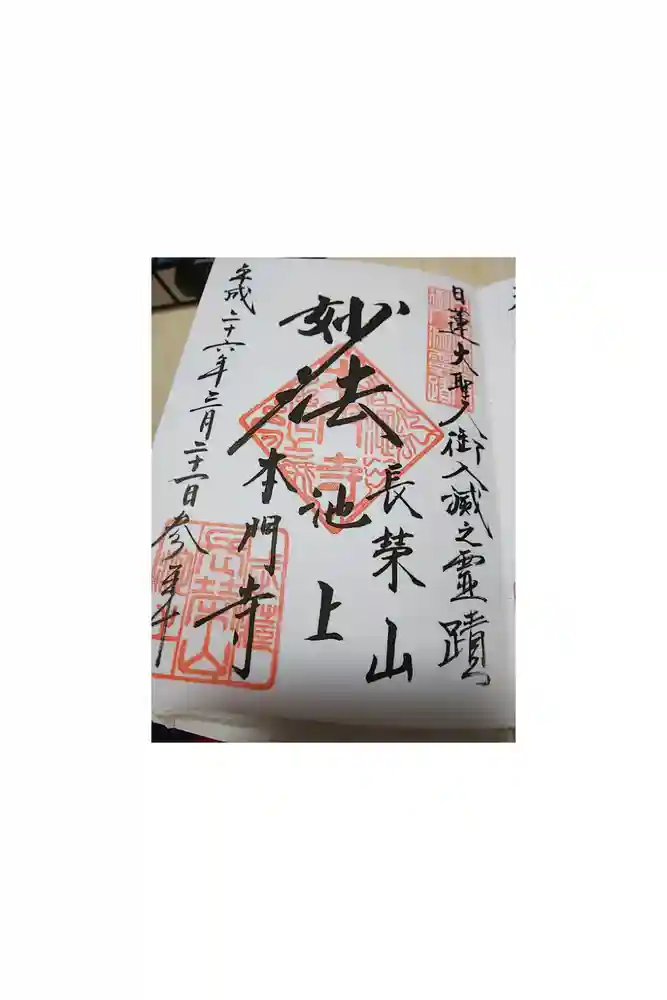 日蓮大聖人御入滅之霊蹟
長榮山
妙法
池上
本門寺
平成二十六年三月二十一日